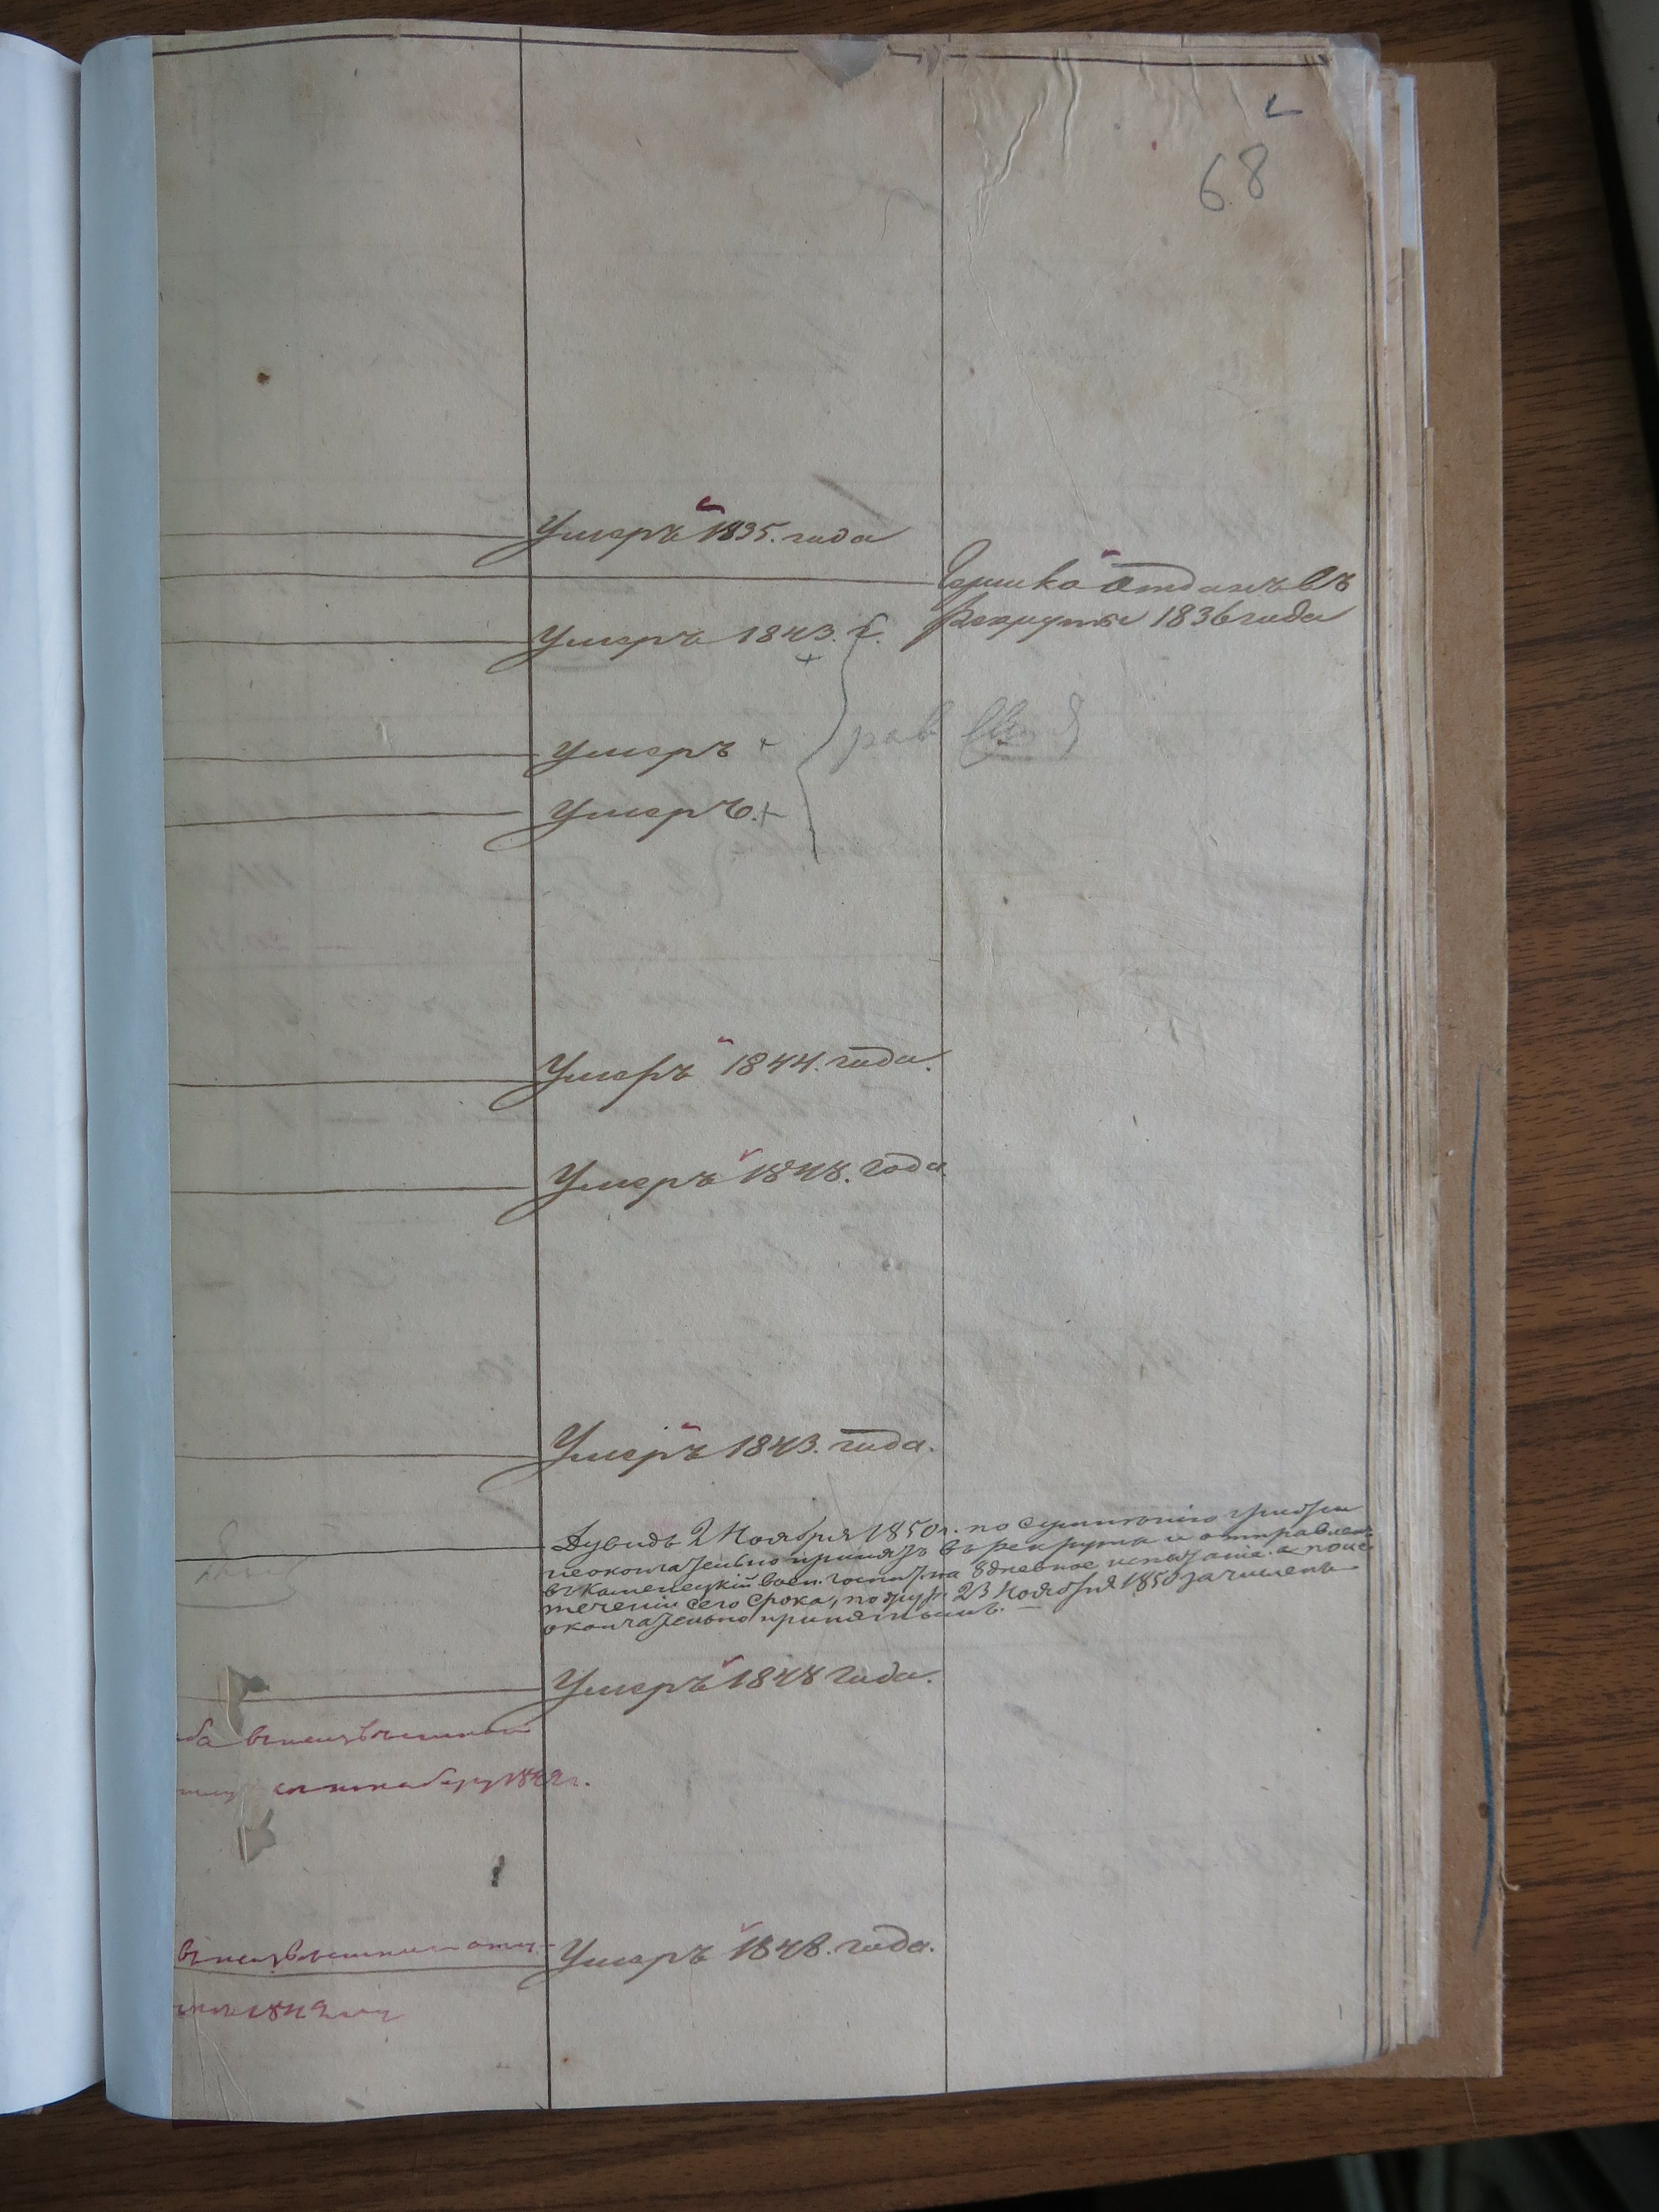 68
Умеръ 1835. года
Гершко отданъ въ
Рекруты 1836 года
Умеръ 1843. г.
рав
умеръ
умеръ.
Умеръ 1844. года.
Умеръ 1848. года.
Умеръ 1843. года.
Дувидъ 2 Ноября 1850 г. по
неокончательно принятъ въ рекрута и отправленъ
въ Каменецкій воен. госпит. на 8 дневное испытаніе. а по ис-
теченіи сего срока, 23 Ноября 1850 зачисленъ
окончательно принятымъ.
Умеръ 1848 года.
въ неизвѣстной
сентября 1849 г.
въ неизвѣстной отлу- Умеръ 1848. года.
1849 году